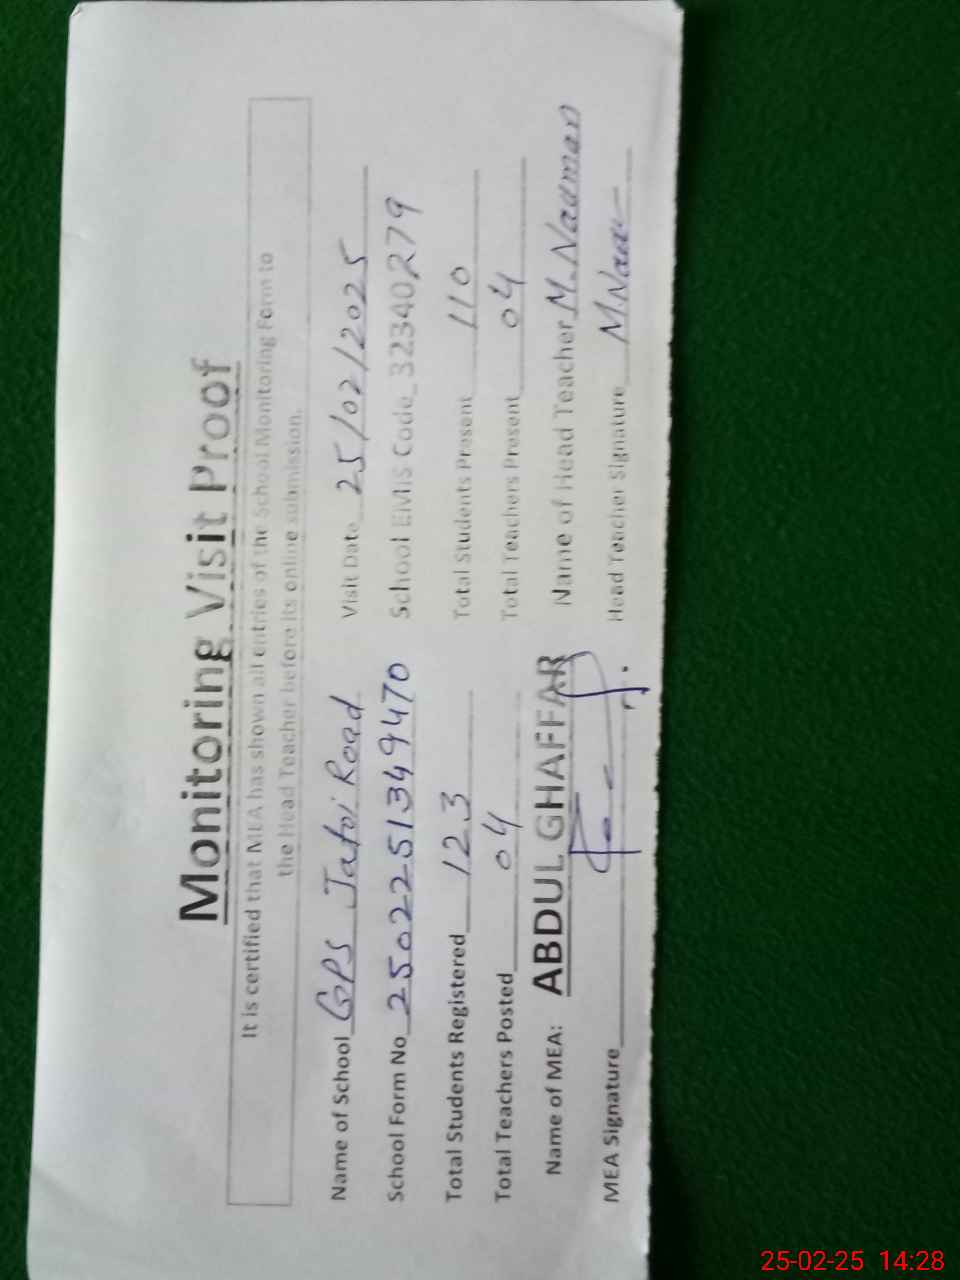 Monitoring Visit Proof
It is certified that MEA has shown all entries of the School Monitoring Form to
the Head Teacher before its online submission.
Name of School GPS Jatoi Road Visit Date 25/02/2025
School Form No 250225134 9470 School EMIS Code 32340279
Total Students Registered 123 Total Students Present 110
Total Teachers Posted 04 Total Teachers Present 04
Name of MEA: ABDUL GHAFFAR Name of Head Teacher M.Nauman
MEA Signature Head Teacher Signature M.Nau
25-02-25 14:28